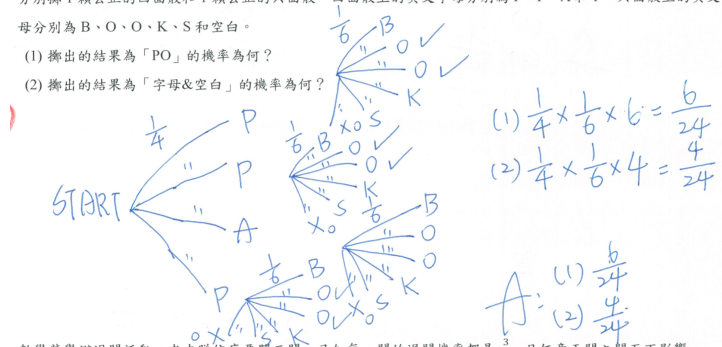 母分別為 B、O、O、K、S 和空白。
(1) 擲出的結果為「PO」的機率為何？
(2) 擲出的結果為「字母&空白」的機率為何？
START
1/4 P
" P
" A
" P
1/6 B
O ✓
O ✓
K
S
X₀
1/6 B
O ✓
O ✓
K
S
X₀
1/6 B
O
O
K
S
X₀
1/6 B
O ✓
O ✓
K
S
X₀
(1) 1/4 × 1/6 × 6 = 6/24
(2) 1/4 × 1/6 × 4 = 4/24
A: (1) 6/24
(2) 4/24